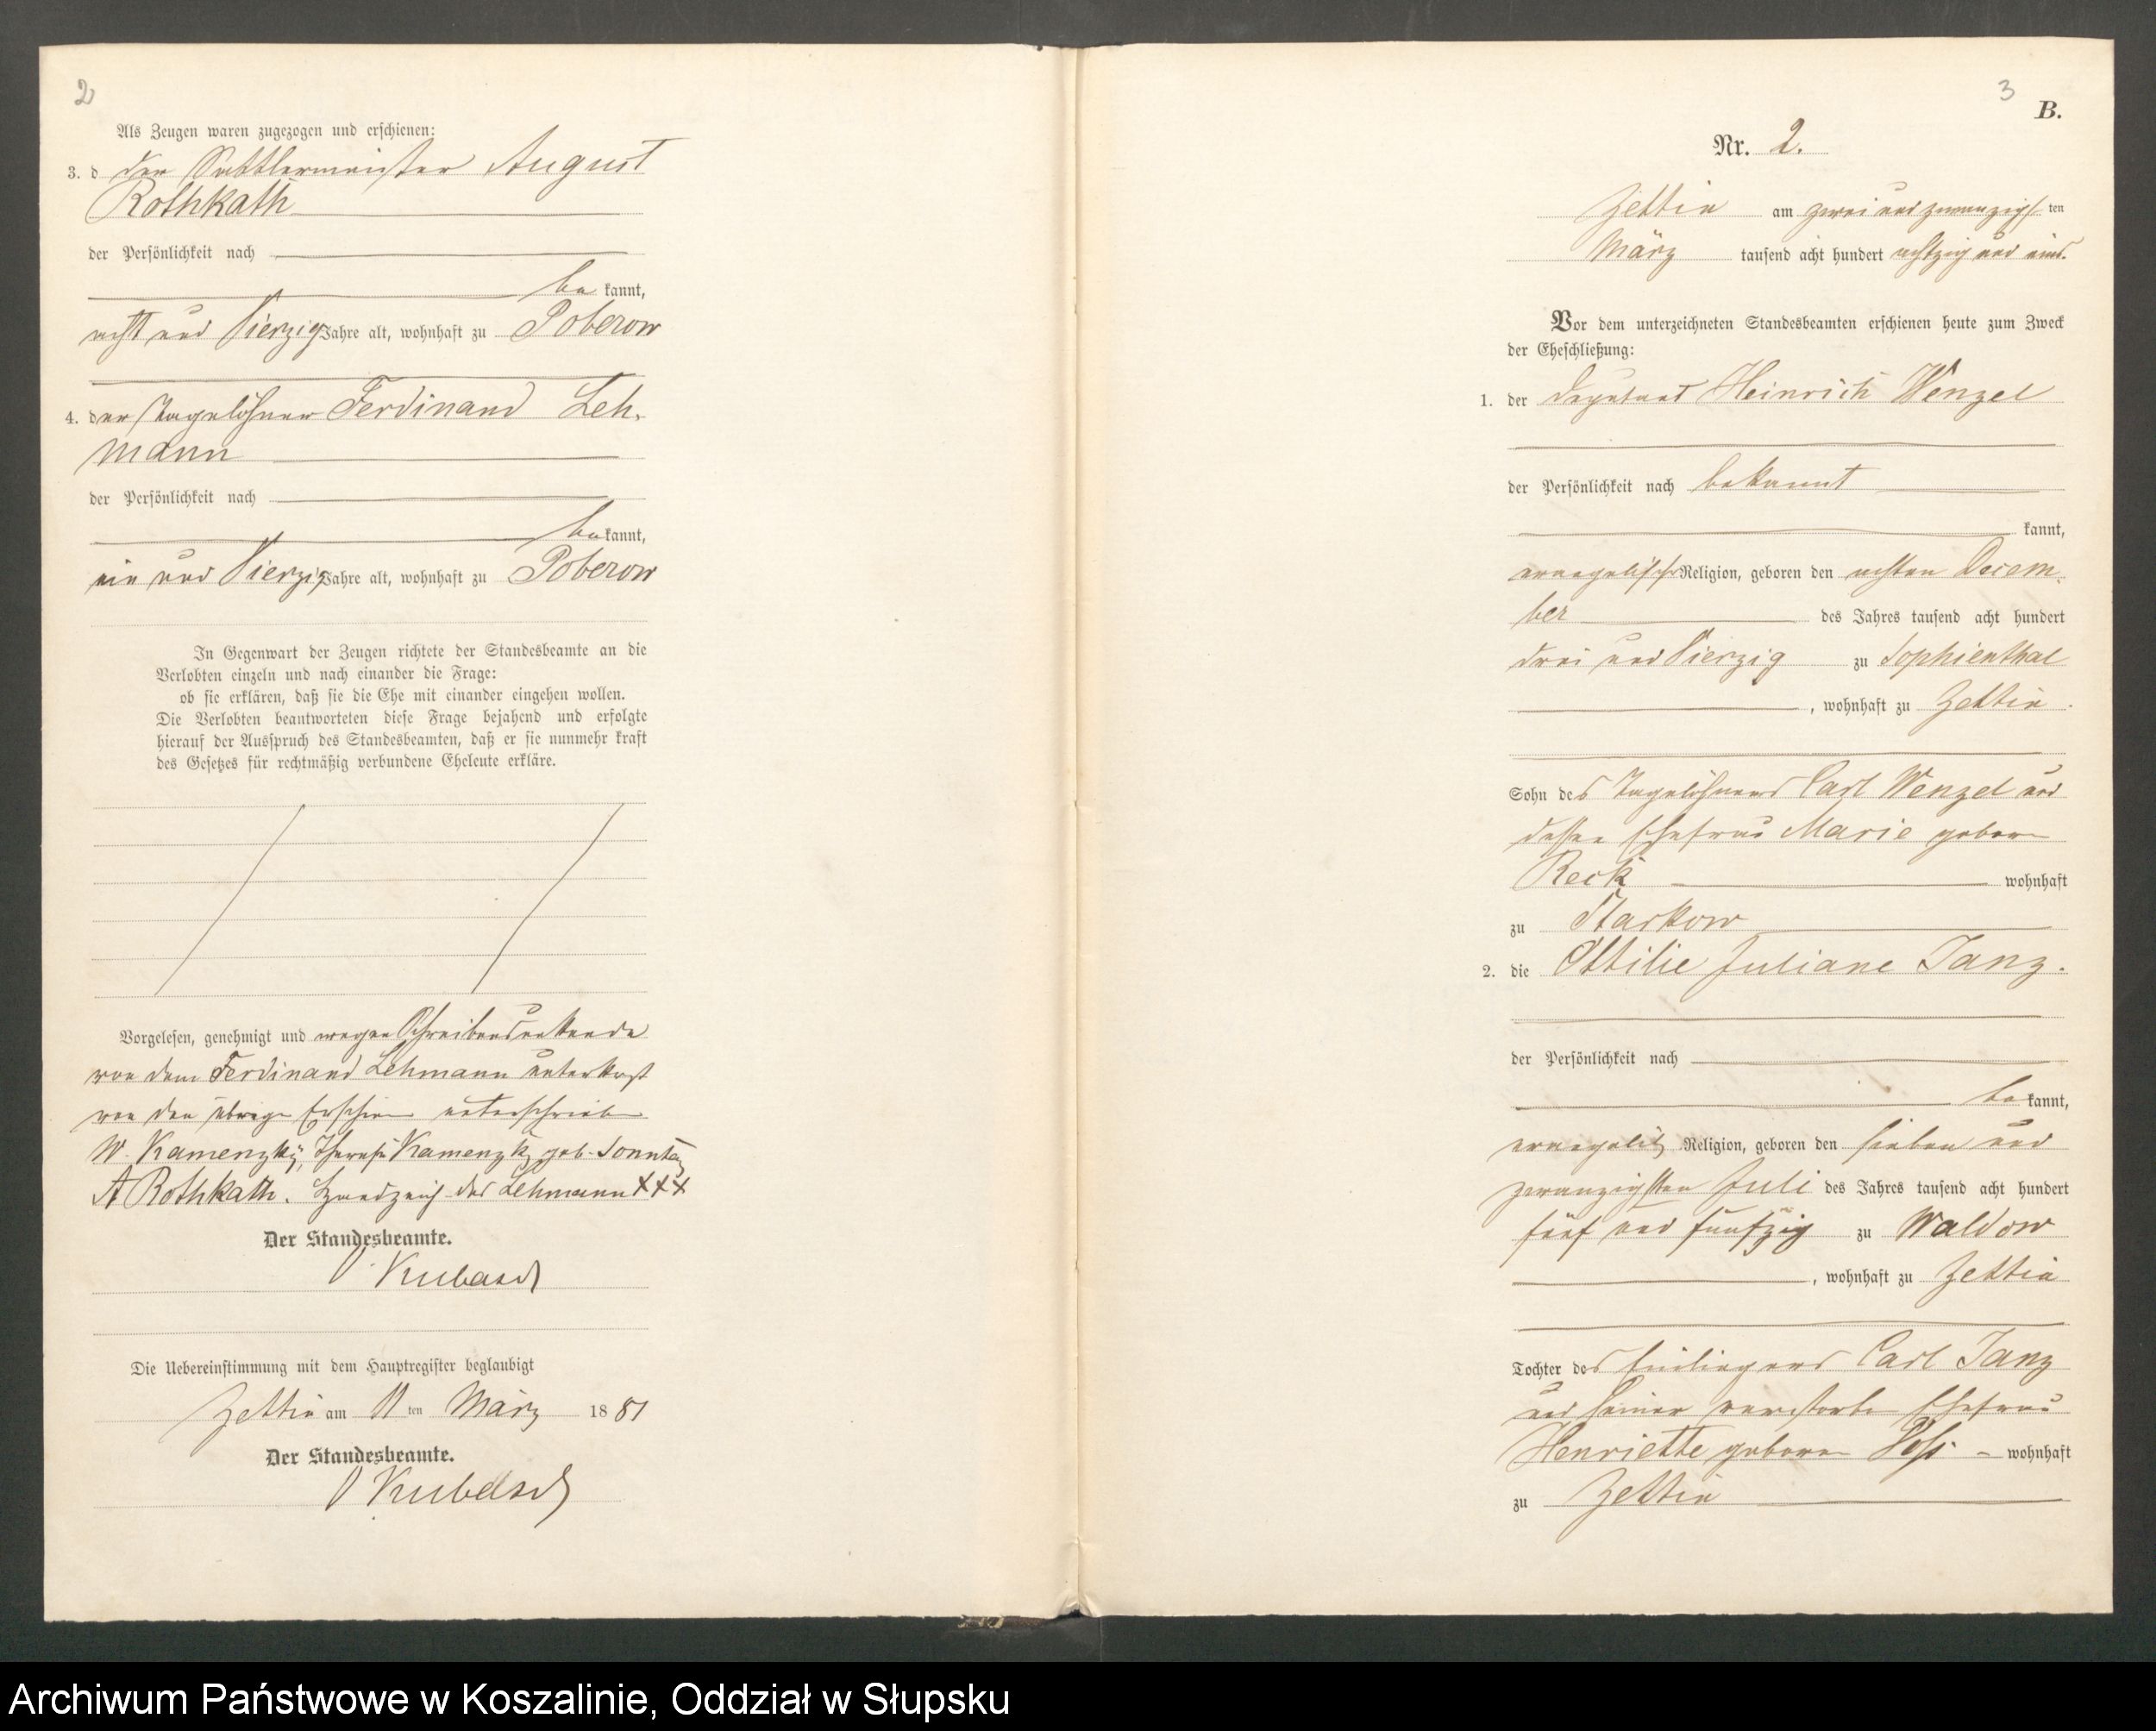 2
Als Zeugen waren zugezogen und erschienen:
3. d der Sattlermeister August
Rothkath
der Persönlichkeit nach
be kannt,
acht und Vierzig Jahre alt, wohnhaft zu Poberow
4. der Tagelöhner Ferdinand Leh-
mann
der Persönlichkeit nach
be kannt,
ein und Vierzig Jahre alt, wohnhaft zu Poberow
In Gegenwart der Zeugen richtete der Standesbeamte an die
Verlobten einzeln und nach einander die Frage:
ob sie erklären, daß sie die Ehe mit einander eingehen wollen.
Die Verlobten beantworteten diese Frage bejahend und erfolgte
hierauf der Ausspruch des Standesbeamten, daß er sie nunmehr kraft
des Gesetzes für rechtmäßig verbundene Eheleute erkläre.
Vorgelesen, genehmigt und wegen Schreibensunkunde
von dem Ferdinand Lehmann unterkreuzt
von den übrigen Erschien unterschrieben
W. Kamenzky, Therese Kamenzky geb. Sonntag
A Rothkath. Handzeich des Lehmann XXX
Der Standesbeamte.
Kubasch
Die Uebereinstimmung mit dem Hauptregister beglaubigt
Zettin am 11 ten März 18 81
Der Standesbeamte.
Kubasch
3
B.
Nr. 2.
Zettin am zwei und zwanzigst ten
März tausend acht hundert achtzig und eins.
Vor dem unterzeichneten Standesbeamten erschienen heute zum Zweck
der Eheschließung:
1. der Deputant Heinrich Wenzel
der Persönlichkeit nach bekannt
kannt,
evangelischer Religion, geboren den achten Decem-
ber des Jahres tausend acht hundert
drei und Vierzig zu Sophienthal
, wohnhaft zu Zettin.
Sohn des Tagelöhners Carl Wenzel und
dessen Ehefrau Marie geboren
Reck wohnhaft
zu Starkow
2. die Ottilie Juliane Janz.
der Persönlichkeit nach
be kannt,
evangelisch Religion, geboren den sieben und
zwanzigsten Juli des Jahres tausend acht hundert
fünf und fünfzig zu Waldow
, wohnhaft zu Zettin
Tochter des Einliegers Carl Janz
und seiner verstorbe Ehefrau
Henriette geboren Voß - wohnhaft
zu Zettin
Archiwum Państwowe w Koszalinie, Oddział w Słupsku